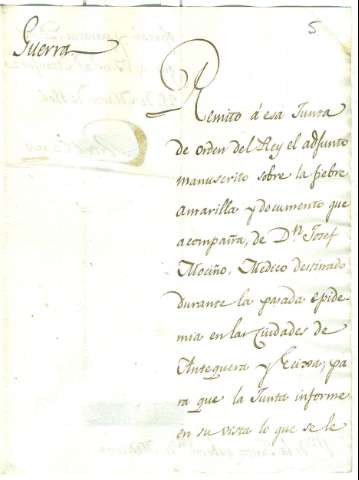 5
Guerra
Remito á esa Junta
de orden del Rey el adjunto
manuscrito sobre la fiebre
amarilla y documento que
acompaña, de Dn. Josef
Mociño, Medico destinado
durante la pasada epide
mia en las Ciudades de
Antequera y Ecixa, pa
ra que la Junta informe
en su vista lo que se le